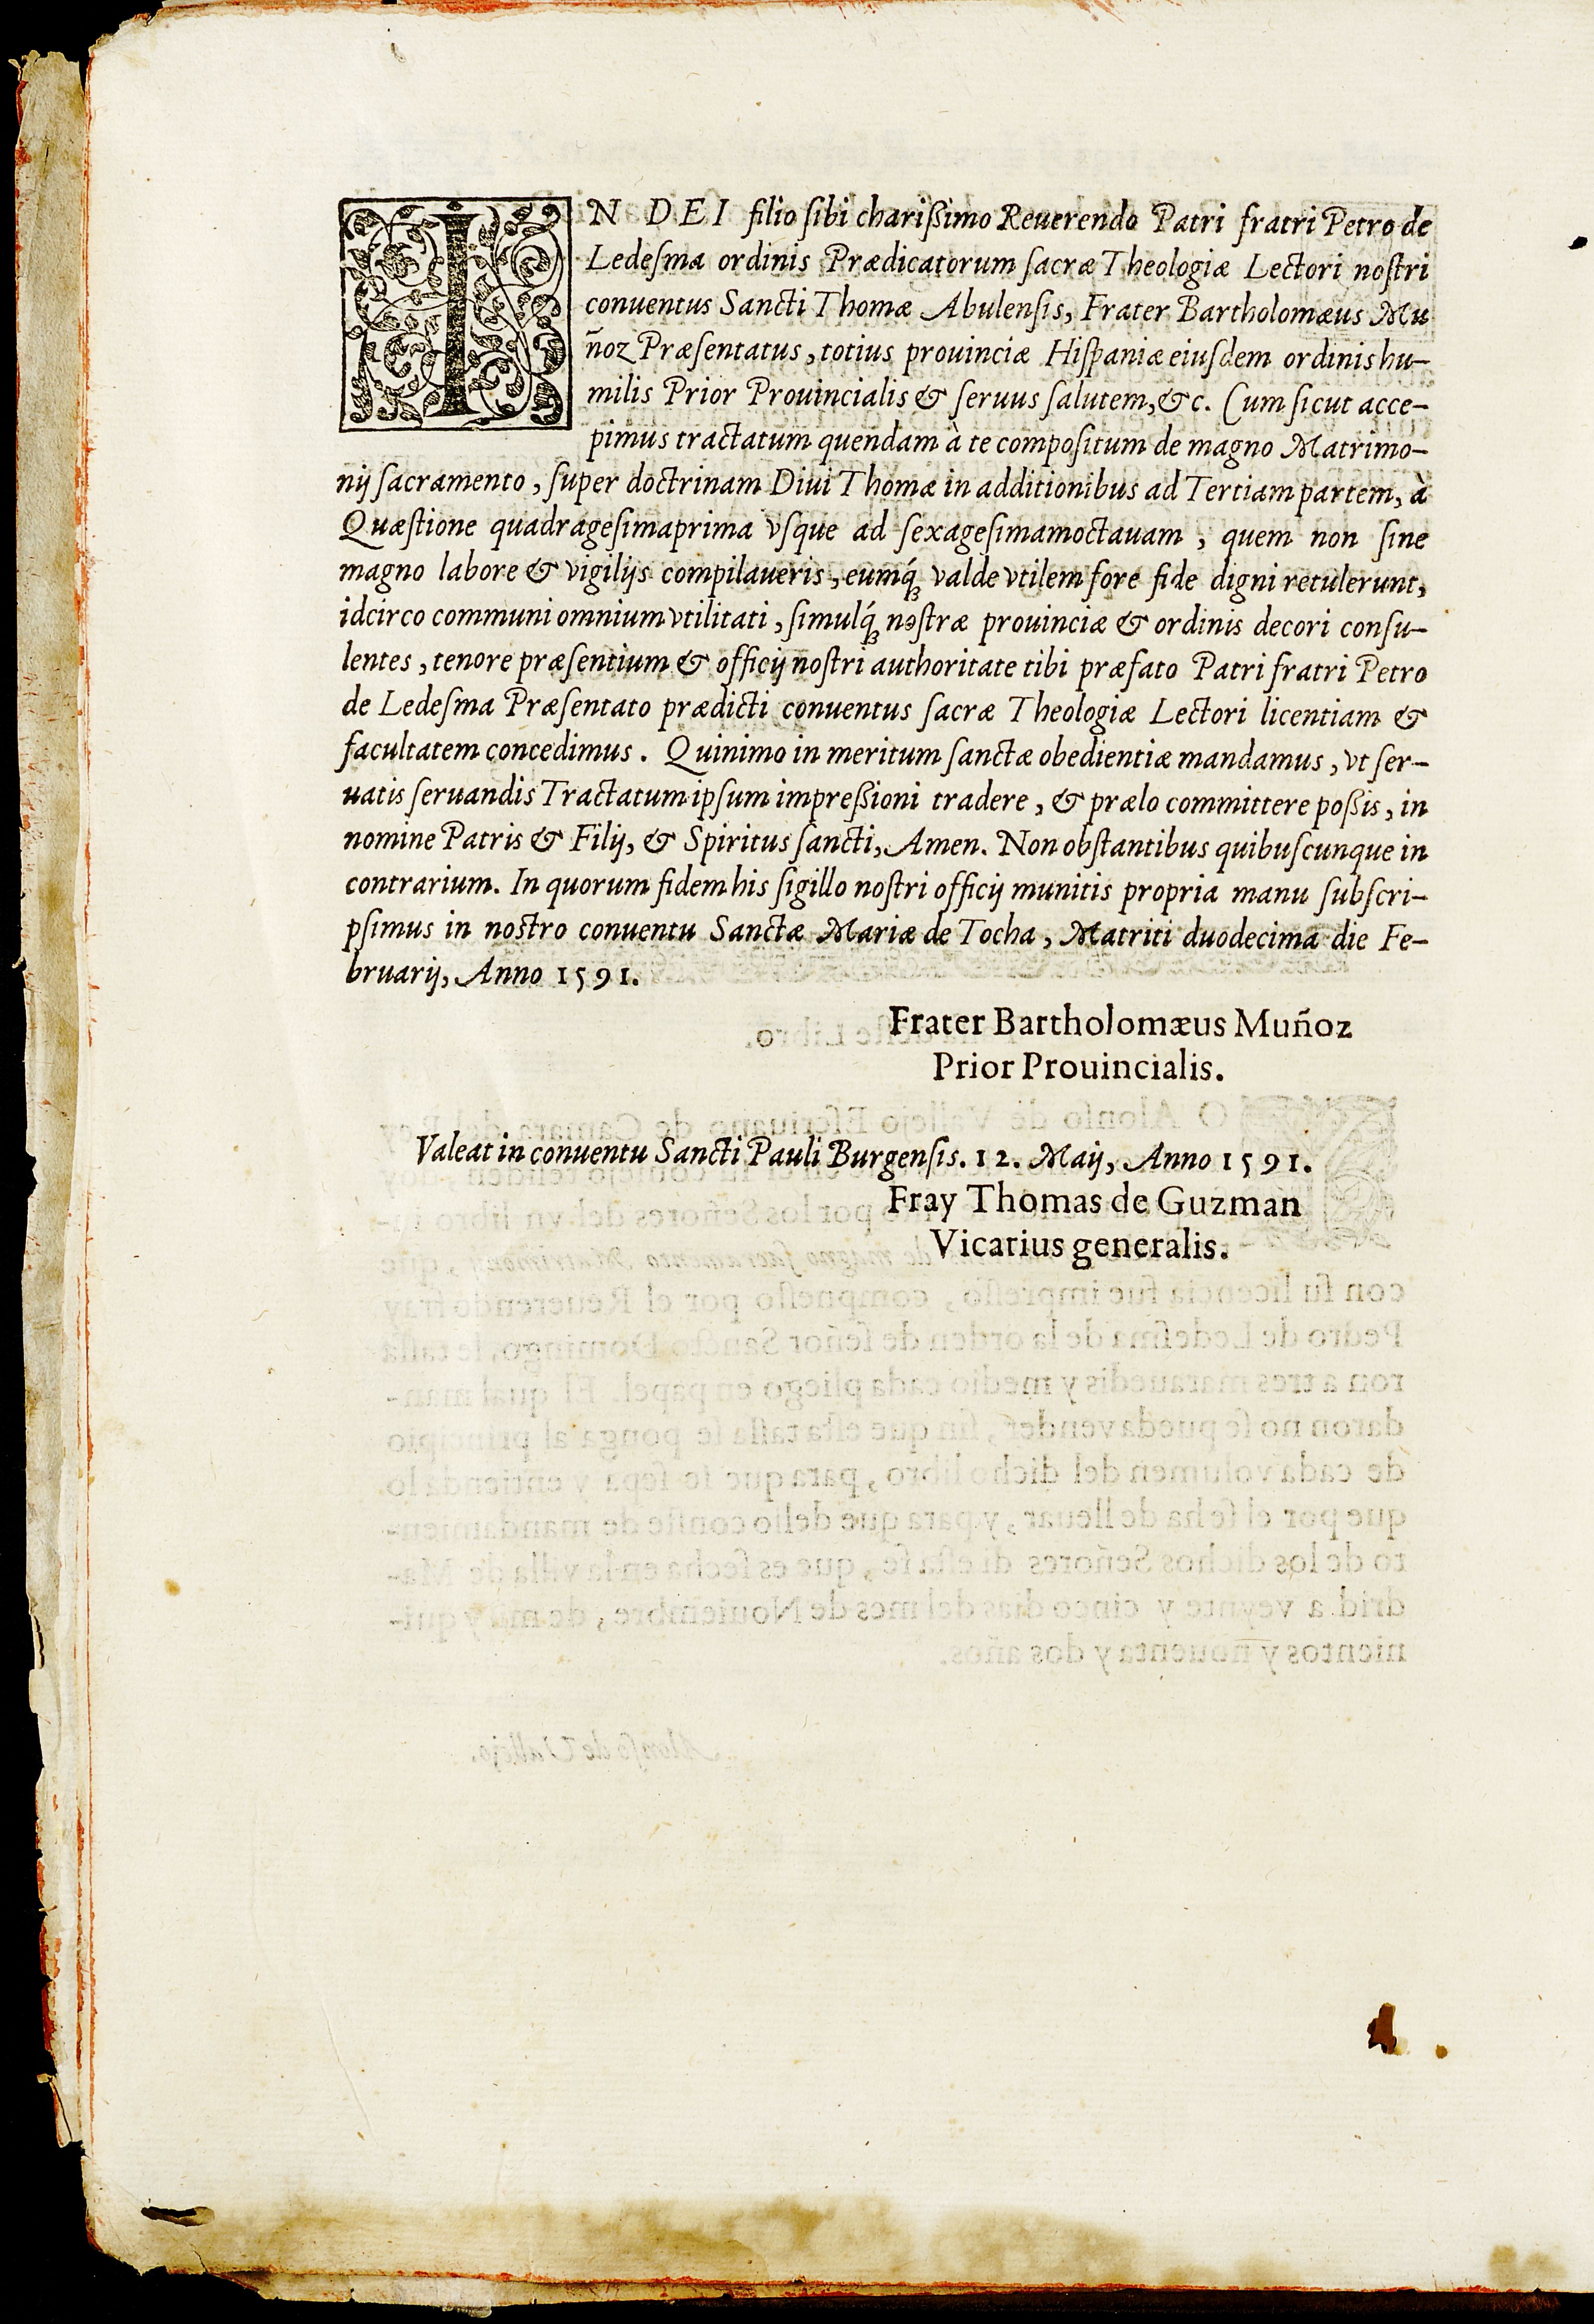 IN DEI filio ſibi chariſsimo Reuerendo Patri fratri Petro de
Ledeſma ordinis Prædicatorum ſacræ Theologiæ Lectori noſtri
conuentus Sancti Thomæ Abulenſis, Frater Bartholomæus Mu
ñoz Præſentatus, totius prouinciæ Hiſpaniæ eiuſdem ordinis hu-
milis Prior Prouincialis & ſeruus ſalutem, &c. Cum ſicut acce-
pimus tractatum quendam à te compoſitum de magno Matrimo-
nij ſacramento, ſuper doctrinam Diui Thomæ in additionibus ad Tertiam partem, à
Quæſtione quadrageſimaprima vſque ad ſexageſimamoctauam, quem non ſine
magno labore & vigilijs compilaueris, eumq́ꝫ valde vtilem fore fide digni retulerunt,
idcirco communi omnium vtilitati, ſimulq́ꝫ noſtræ prouinciæ & ordinis decori conſu-
lentes, tenore præſentium & officij noſtri authoritate tibi præfato Patri fratri Petro
de Ledeſma Præſentato prædicti conuentus ſacræ Theologiæ Lectori licentiam &
facultatem concedimus. Quinimo in meritum ſanctæ obedientiæ mandamus, vt ſer-
uatis ſeruandis Tractatum ipſum impreſsioni tradere, & prælo committere poſsis, in
nomine Patris & Filij, & Spiritus ſancti, Amen. Non obſtantibus quibuſcunque in
contrarium. In quorum fidem his ſigillo noſtri officij munitis propria manu ſubſcri-
pſimus in noſtro conuentu Sanctæ Mariæ de Tocha, Matriti duodecima die Fe-
bruarij, Anno 1591.
Frater Bartholomæus Muñoz
Prior Prouincialis.
Valeat in conuentu Sancti Pauli Burgenſis. 12. Maij, Anno 1591.
Fray Thomas de Guzman
Vicarius generalis.